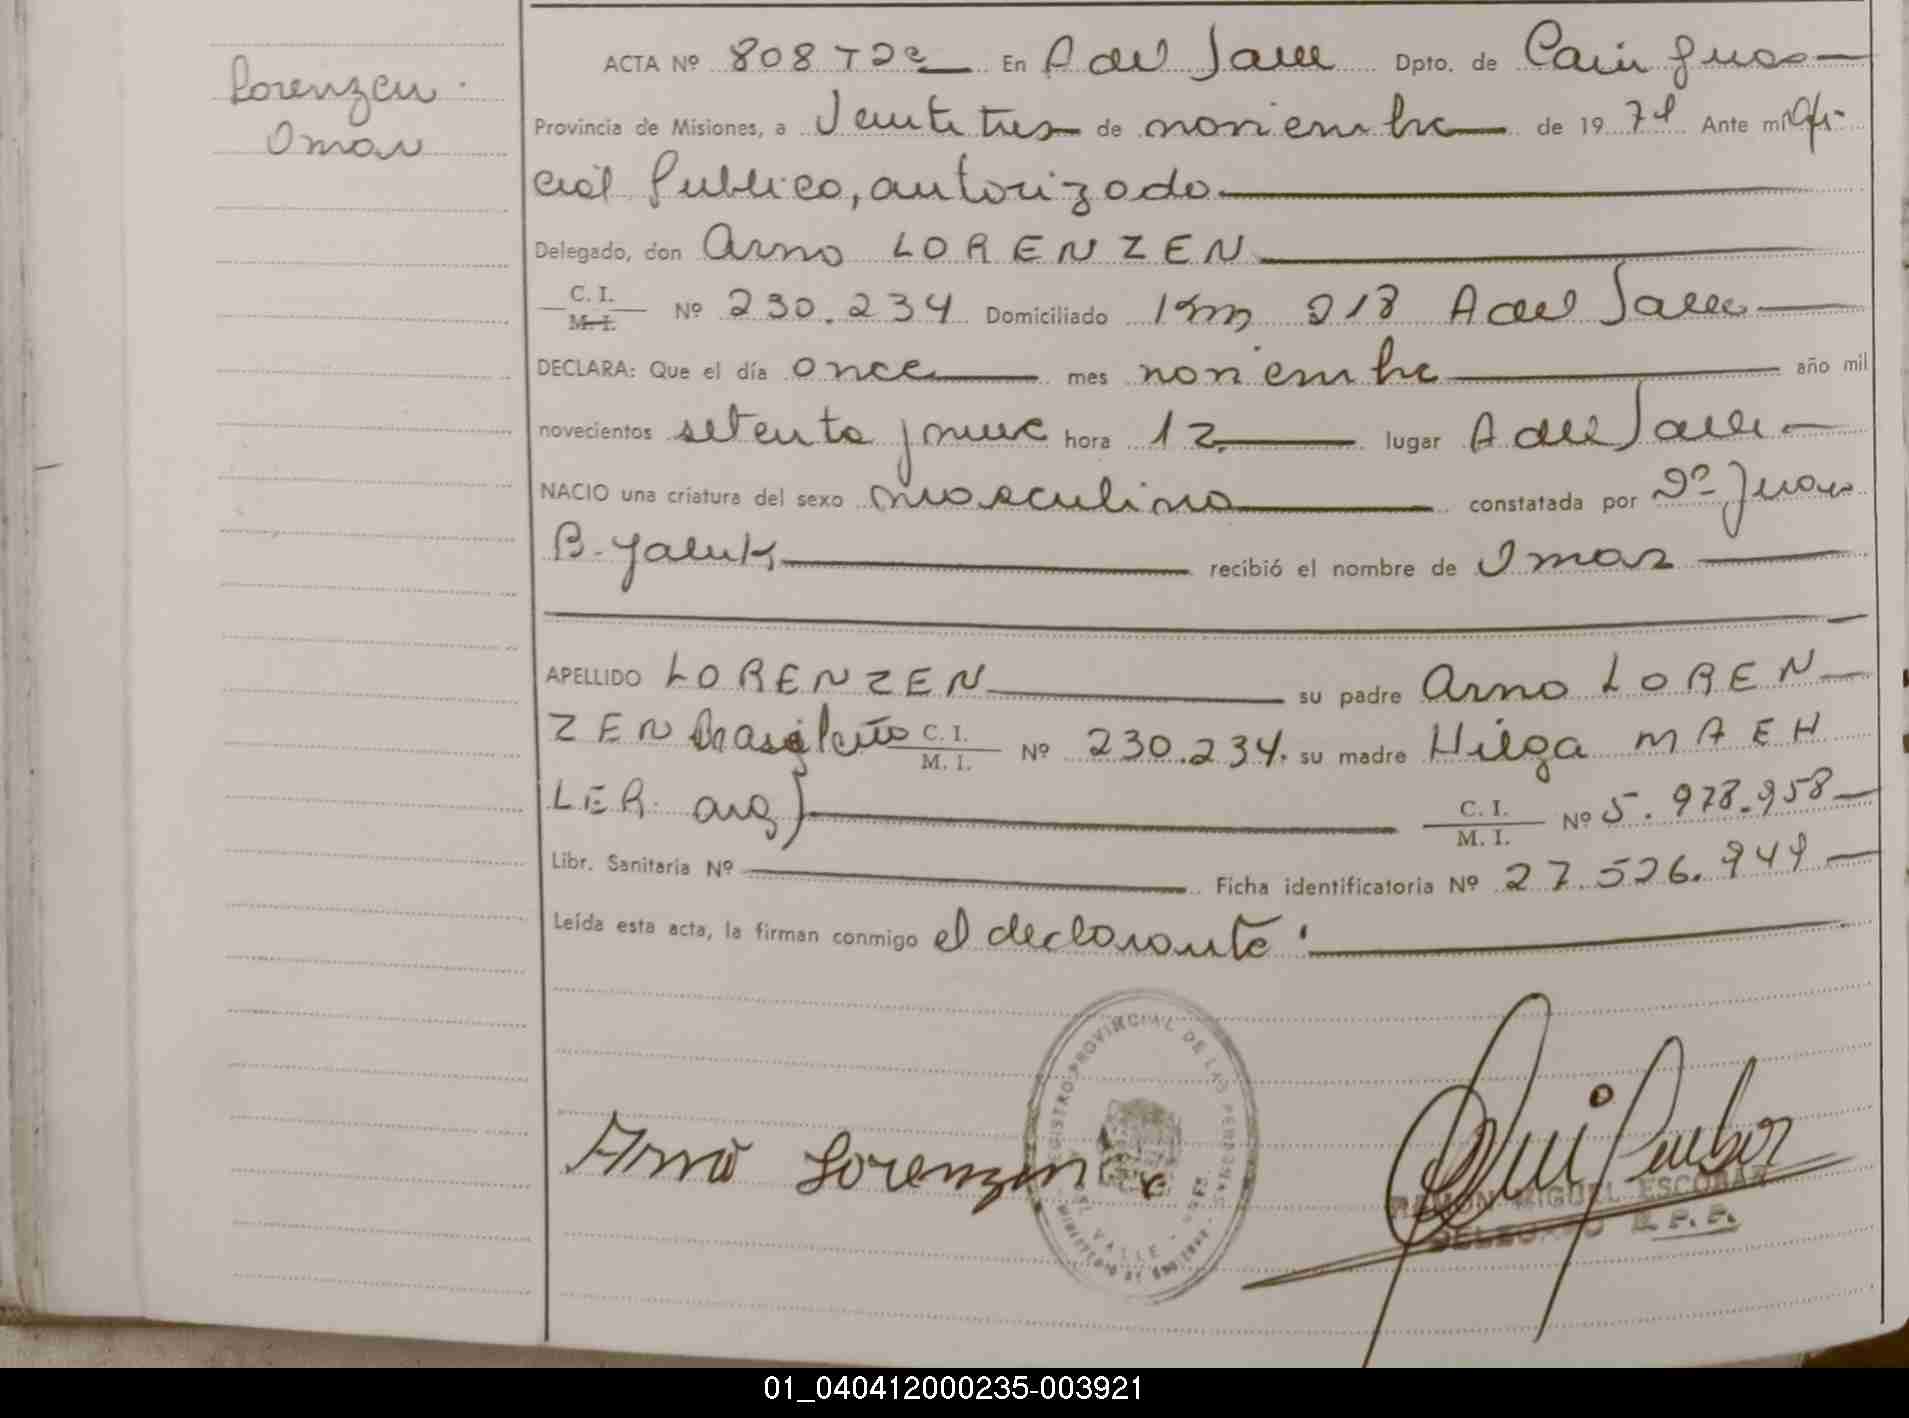 Lorenzen
Omar
ACTA Nº 808 T2º En A del Valle Dpto. de Cainguas
Provincia de Misiones, a Veintitres de noviembre de 1979 Ante mi Ofi-
cial Publico, autorizado
Delegado, don Arno LORENZEN
C. I.
M. I. Nº 230.234 Domiciliado Km 218 A del Valle
DECLARA: Que el día once mes noviembre año mil
novecientos setenta y nueve hora 12 lugar A del Valle
NACIO una criatura del sexo masculino constatada por Dº Juan
B. recibió el nombre de Omar
APELLIDO LORENZEN su padre Arno LOREN
ZEN brasileño C. I.
M. I. Nº 230.234. su madre Hilga MAEH
LER arg) C. I.
M. I. Nº 5.978.958
Libr. Sanitaria Nº Ficha identificatoria Nº 27.526.949
Leída esta acta, la firman conmigo el declarante:
REGISTRO PROVINCIAL DE LAS PERSONAS
Arno Lorenzen
RAMON MIGUEL ESCOBAR
DELEGADO R. P. P.
01_040412000235-003921